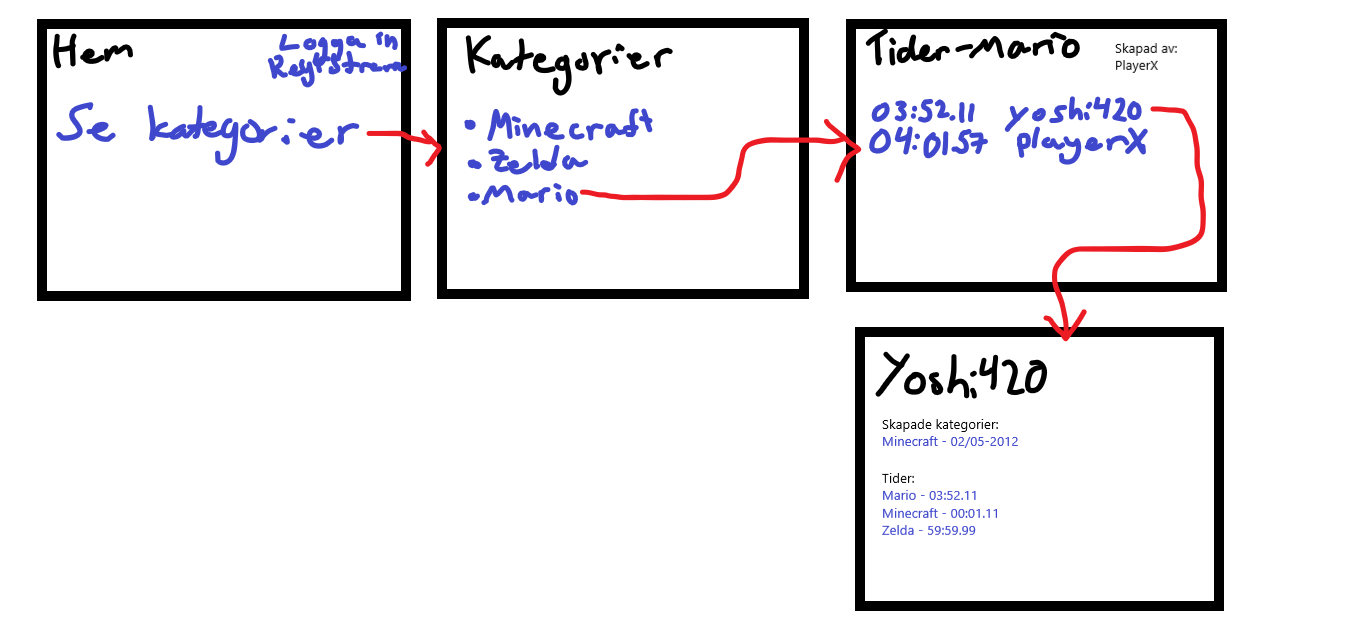 Hem
Logga in
Registrera
Se kategorier
Kategorier
• Minecraft
• Zelda
• Mario
Tider-Mario
Skapad av:
PlayerX
03:52.11 yoshi420
04:01.57 playerX
Yoshi420
Skapade kategorier:
Minecraft - 02/05-2012
Tider:
Mario - 03:52.11
Minecraft - 00:01.11
Zelda - 59:59.99